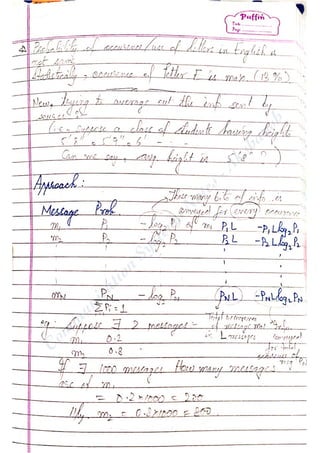 Puffin
Date
Page
Probability of occurence/use of letters in English is
not same
Statistically, occurence of letter E is max. (13%)
Now, trying to average out the info sent by
source :-
(i.e. suppose a class of students having heights
Can we say, avg. height is 5'8" ?)
Approach :
These many bits of info is
conveyed for every occurence
Message Prob of m1
m1 P1 -log2 P1 P1L -P1L log2 P1
m2 P2 -log2 P2 P2L -P2L log2 P2
mN PN -log2 PN PNL -PNL log2 PN
ΣPi = 1
Total occurences
of message
L messages conveyed
for total
eg. Suppose ∃ 2 messages -
m1 0.2
m2 0.8
If ∃ 1000 messages How many messages
of m1
= 0.2×1000 = 200
lly. m2 = 0.8×1000 = 800